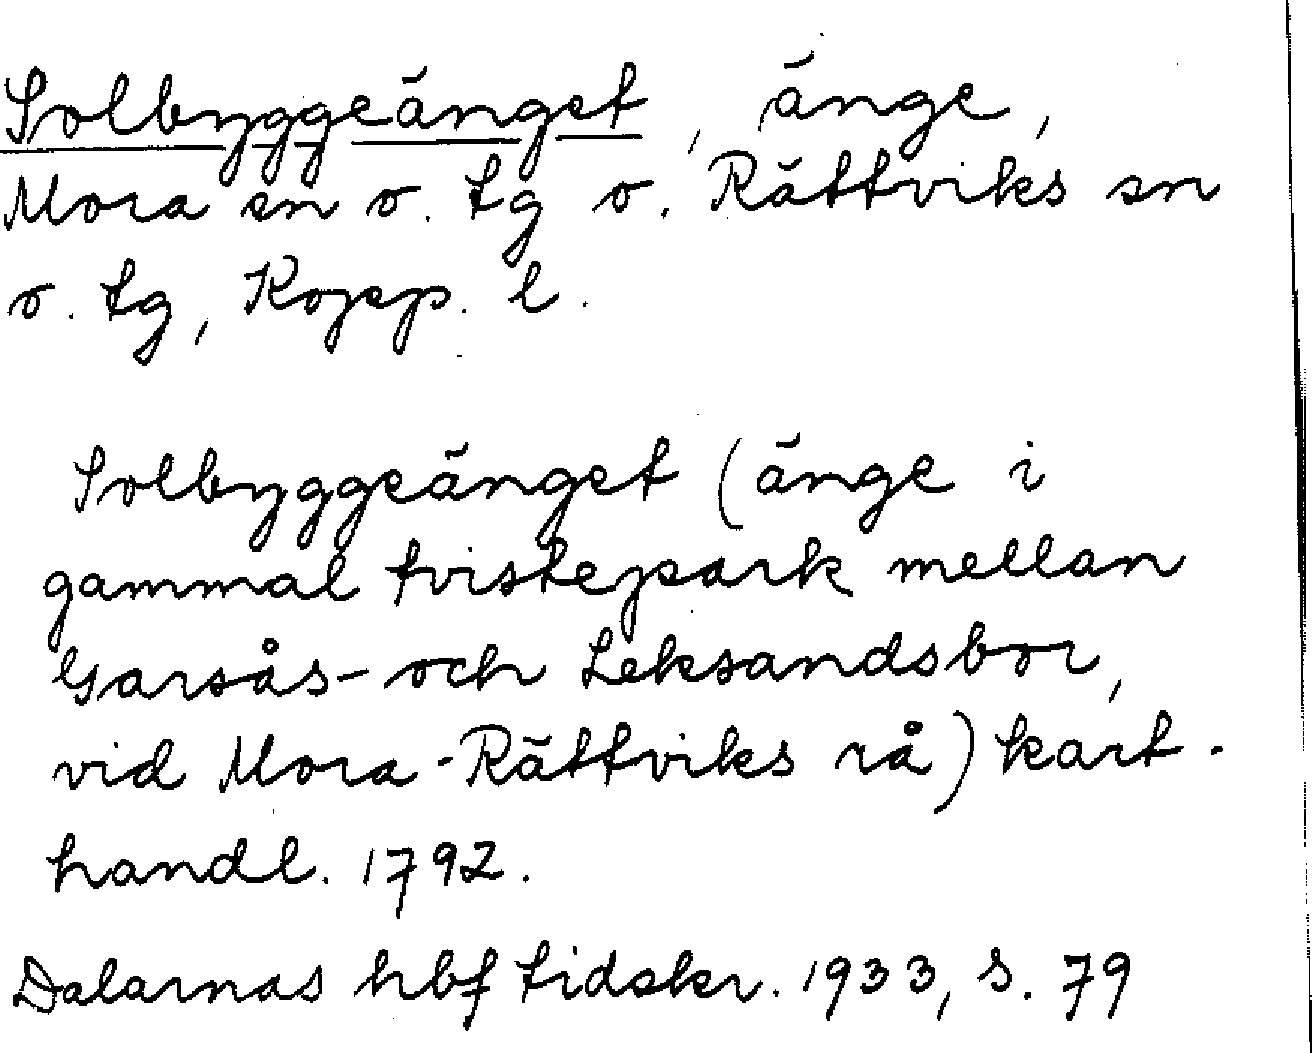 Solbyggeänget, änge,
Mora sn o. tg o. Rättviks sn
o. tg, Kopp. l.
Solbyggeänget (änge i
gammal tvistepark mellan
Garsås- och Leksandsbor,
vid Mora-Rättviks rå) kart-
handl. 1792.
Dalarnas hbf tidskr. 1933, s. 79